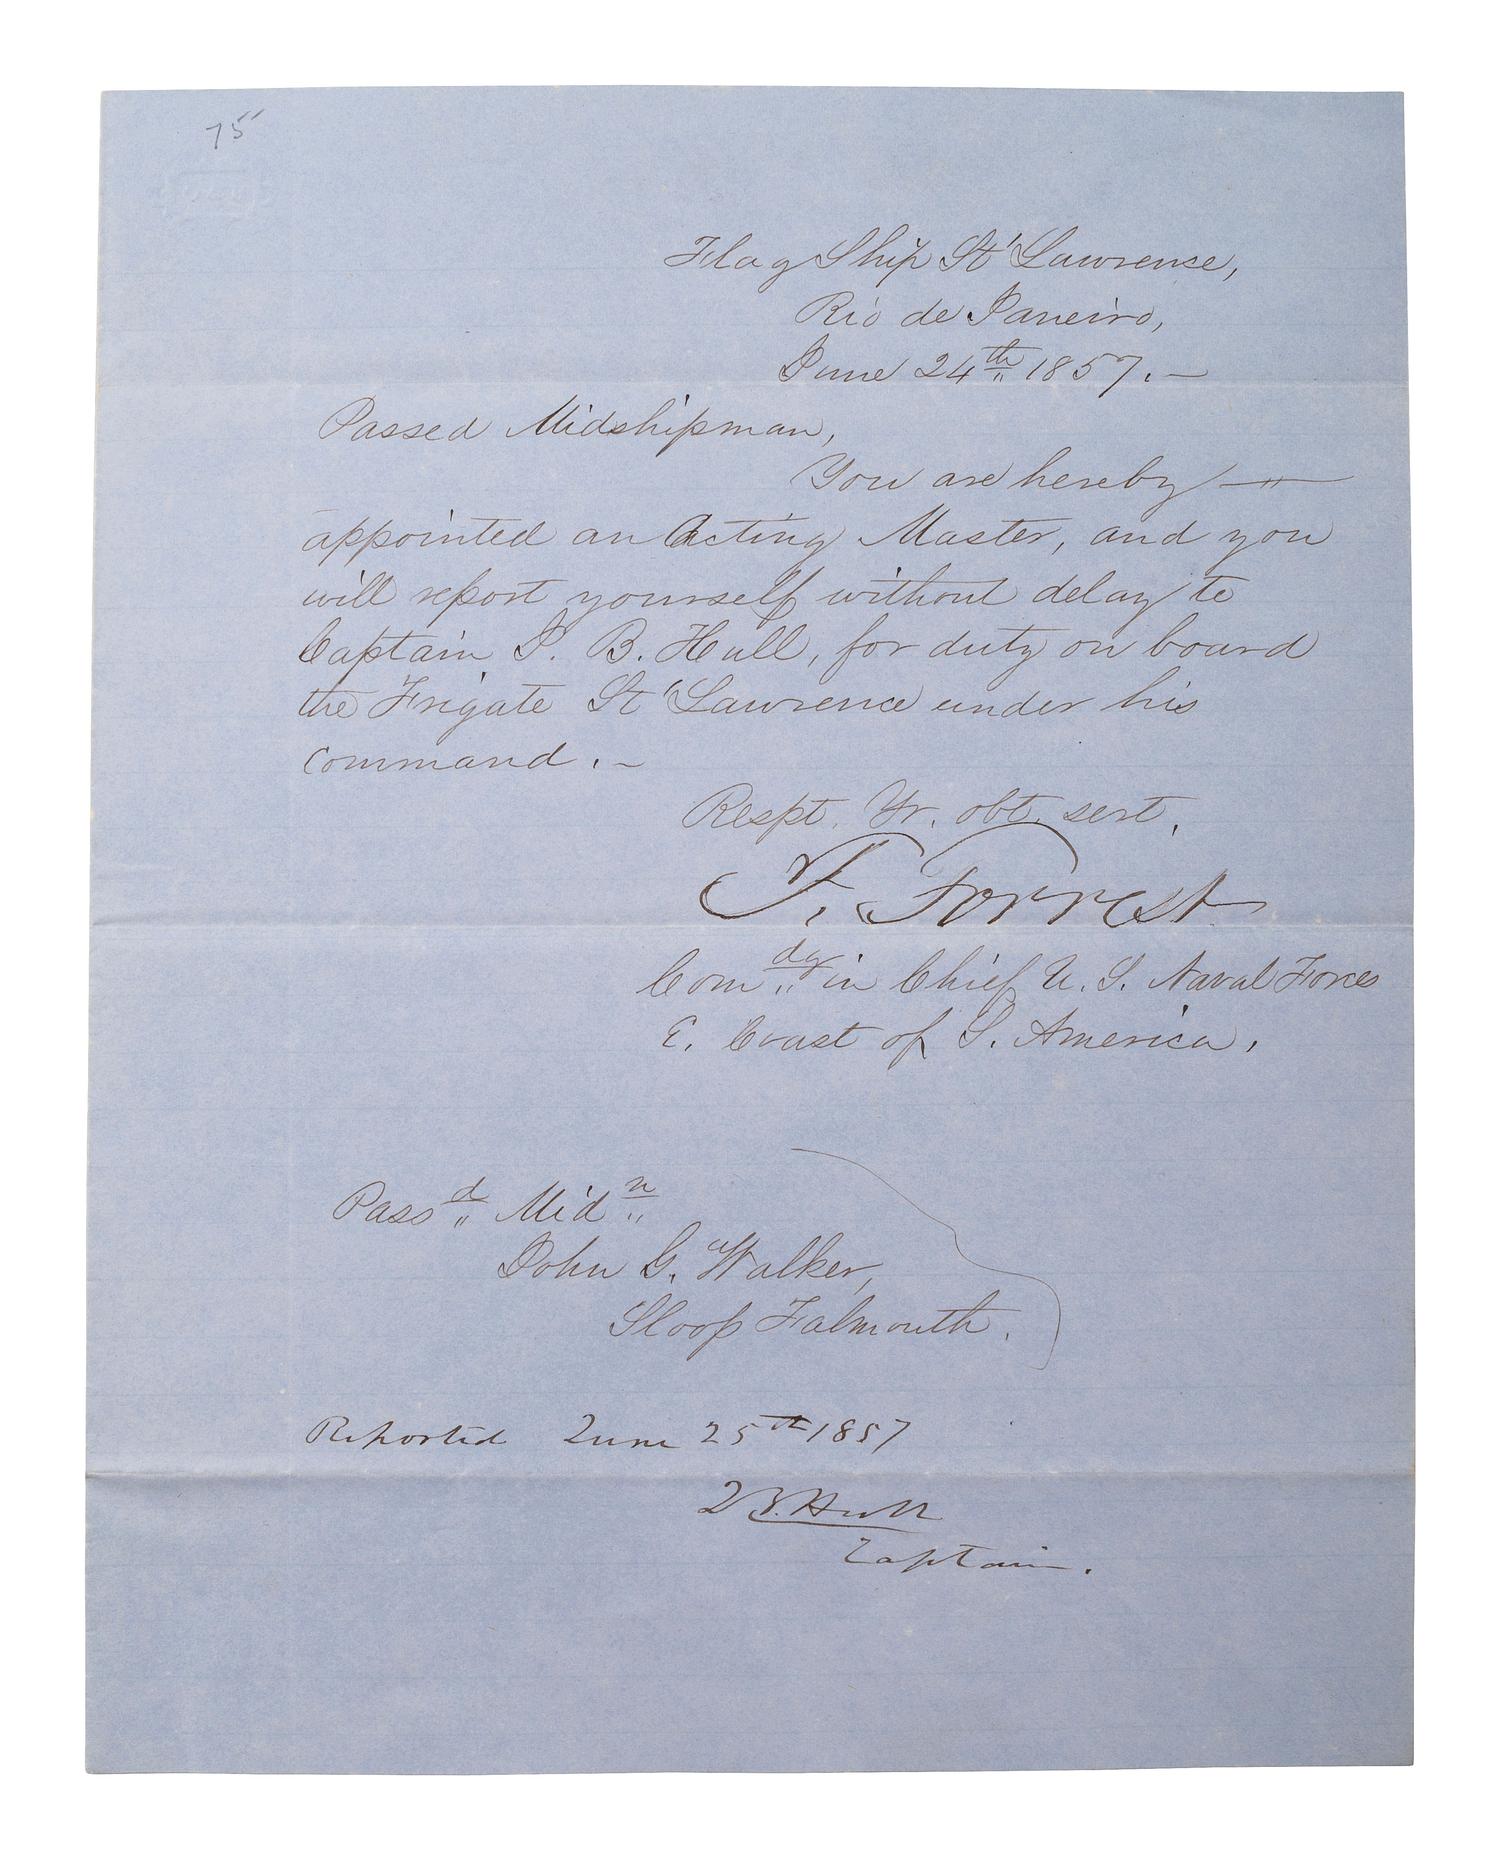 75
Flag Ship St Lawrence,
Rio de Janeiro,
June 24th 1857. —
Passed Midshipman,
You are hereby —
appointed an Acting Master, and you
will report yourself without delay to
Captain J. B. Hull, for duty on board
the Frigate St Lawrence under his
command. —
Respt. Yr. obt. sert.
F. Forrest
Comdg in Chief U. S. Naval Forces
E. Coast of S. America.
Passd Midn
John G. Walker,
Sloop Falmouth.
Reported June 25th 1857
J B. Hull
Captain.